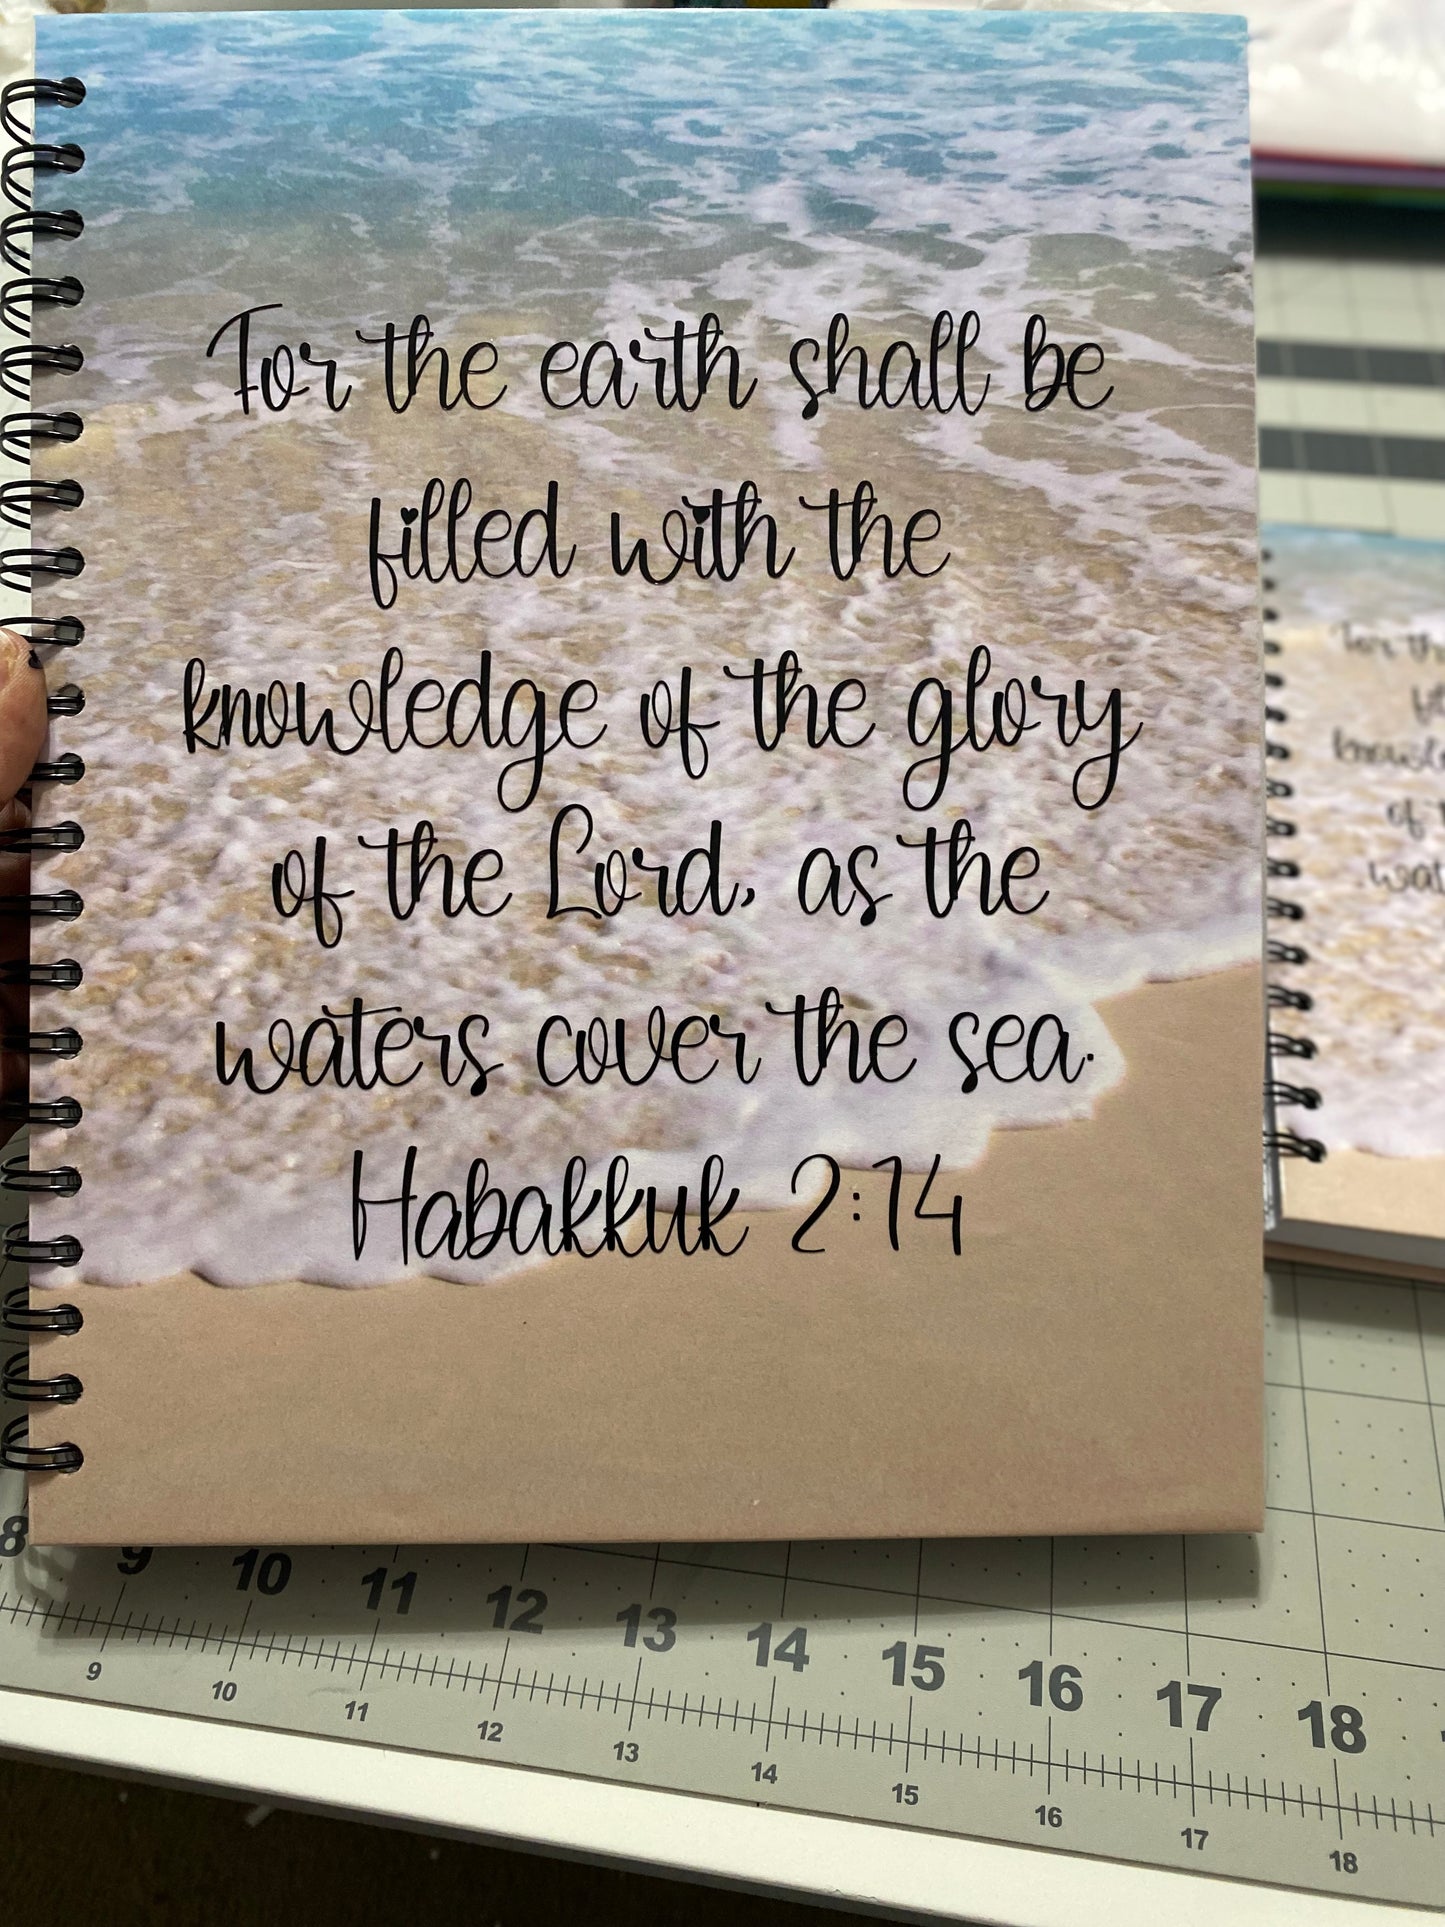 For the earth shall be
filled with the
knowledge of the glory
of the Lord, as the
waters cover the sea.
Habakkuk 2:14
For the
knowle
of t
wat
8 9 10 11 12 13 14 15 16 17 18
9 10 11 12 13 14 15 16 17 18